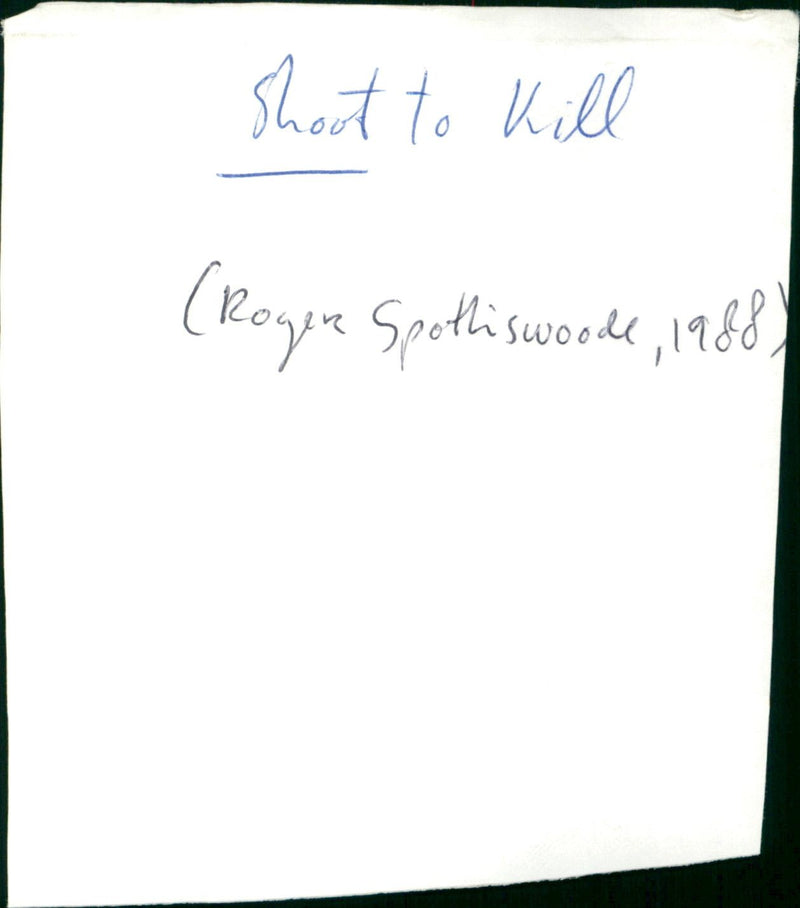 Shoot to Kill
(Roger Spottiswoode, 1988)